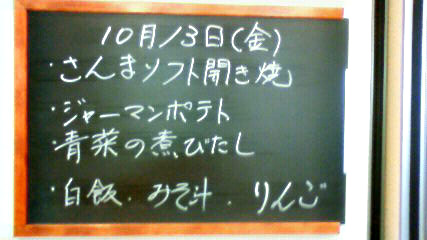 10月13日(金)
・さんまソフト開き焼
・ジャーマンポテト
・青菜の煮びたし
・白飯．みそ汁．りんご